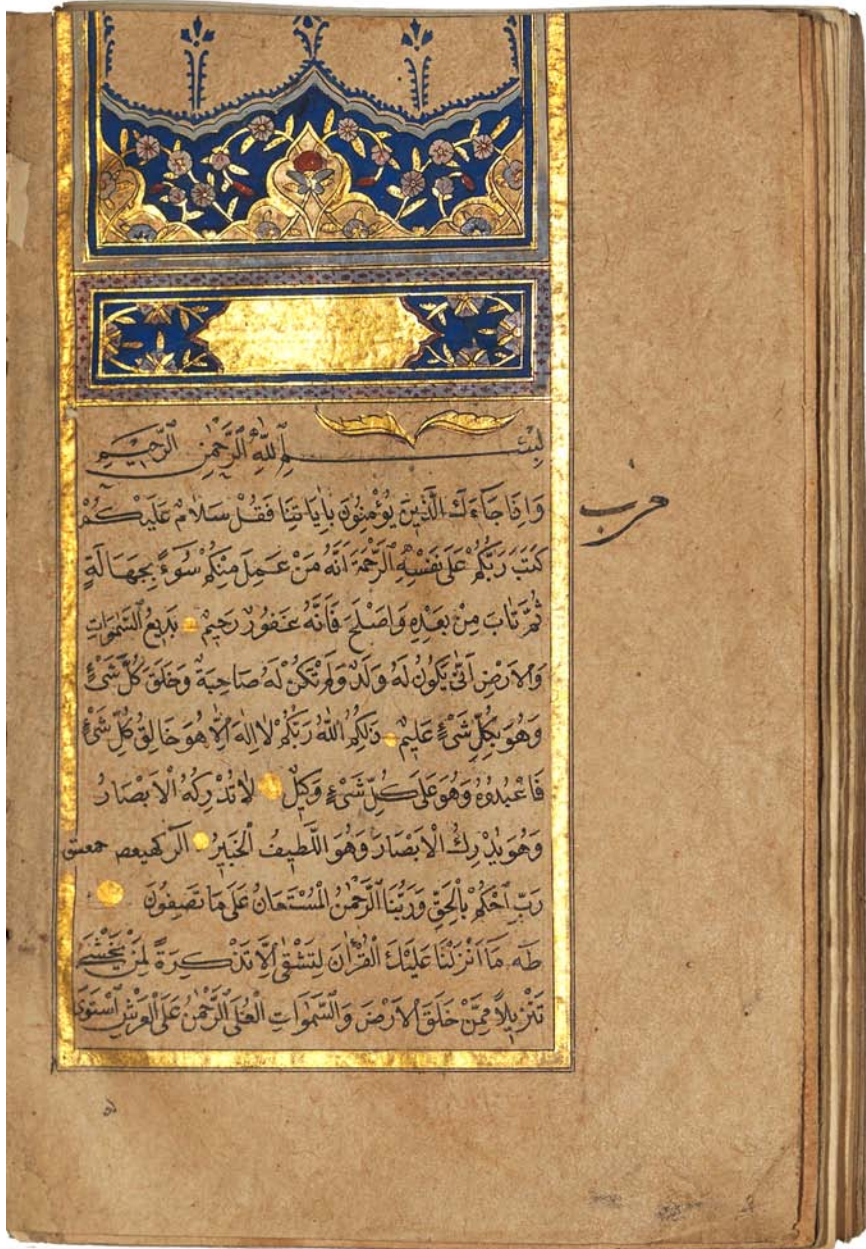 بِسْمِ اللّٰهِ الرَّحْمٰنِ الرَّحِيمِ
وَاِذَا جَاءَكَ الَّذِينَ يُؤْمِنُونَ بِاٰيَاتِنَا فَقُلْ سَلَامٌ عَلَيْكُمْ
حزب
كَتَبَ رَبُّكُمْ عَلٰى نَفْسِهِ الرَّحْمَةَ اَنَّهُ مَنْ عَمِلَ مِنْكُمْ سُوءً بِجَهَالَةٍ
ثُمَّ تَابَ مِنْ بَعْدِهِ وَاَصْلَحَ فَاَنَّهُ غَفُورٌ رَحِيمٌ بَدِيعُ السَّمٰوَاتِ
وَالْاَرْضِ اَنّٰى يَكُونُ لَهُ وَلَدٌ وَلَمْ تَكُنْ لَهُ صَاحِبَةٌ وَخَلَقَ كُلَّ شَىْءٍ
وَهُوَ بِكُلِّ شَىْءٍ عَلِيمٌ ذٰلِكُمُ اللّٰهُ رَبُّكُمْ لَا اِلٰهَ اِلَّا هُوَ خَالِقُ كُلِّ شَىْءٍ
فَاعْبُدُوهُ وَهُوَ عَلٰى كُلِّ شَىْءٍ وَكِيلٌ لَا تُدْرِكُهُ الْاَبْصَارُ
وَهُوَ يُدْرِكُ الْاَبْصَارَ وَهُوَ اللَّطِيفُ الْخَبِيرُ الٓرٰ كهيعص حمعسق
رَبِّ احْكُمْ بِالْحَقِّ وَرَبُّنَا الرَّحْمٰنُ الْمُسْتَعَانُ عَلٰى مَا تَصِفُونَ
طٰهٰ مَا اَنْزَلْنَا عَلَيْكَ الْقُرْاٰنَ لِتَشْقٰى اِلَّا تَذْكِرَةً لِمَنْ يَخْشٰى
تَنْزِيلًا مِمَّنْ خَلَقَ الْاَرْضَ وَالسَّمٰوَاتِ الْعُلٰى الرَّحْمٰنُ عَلَى الْعَرْشِ اسْتَوٰى